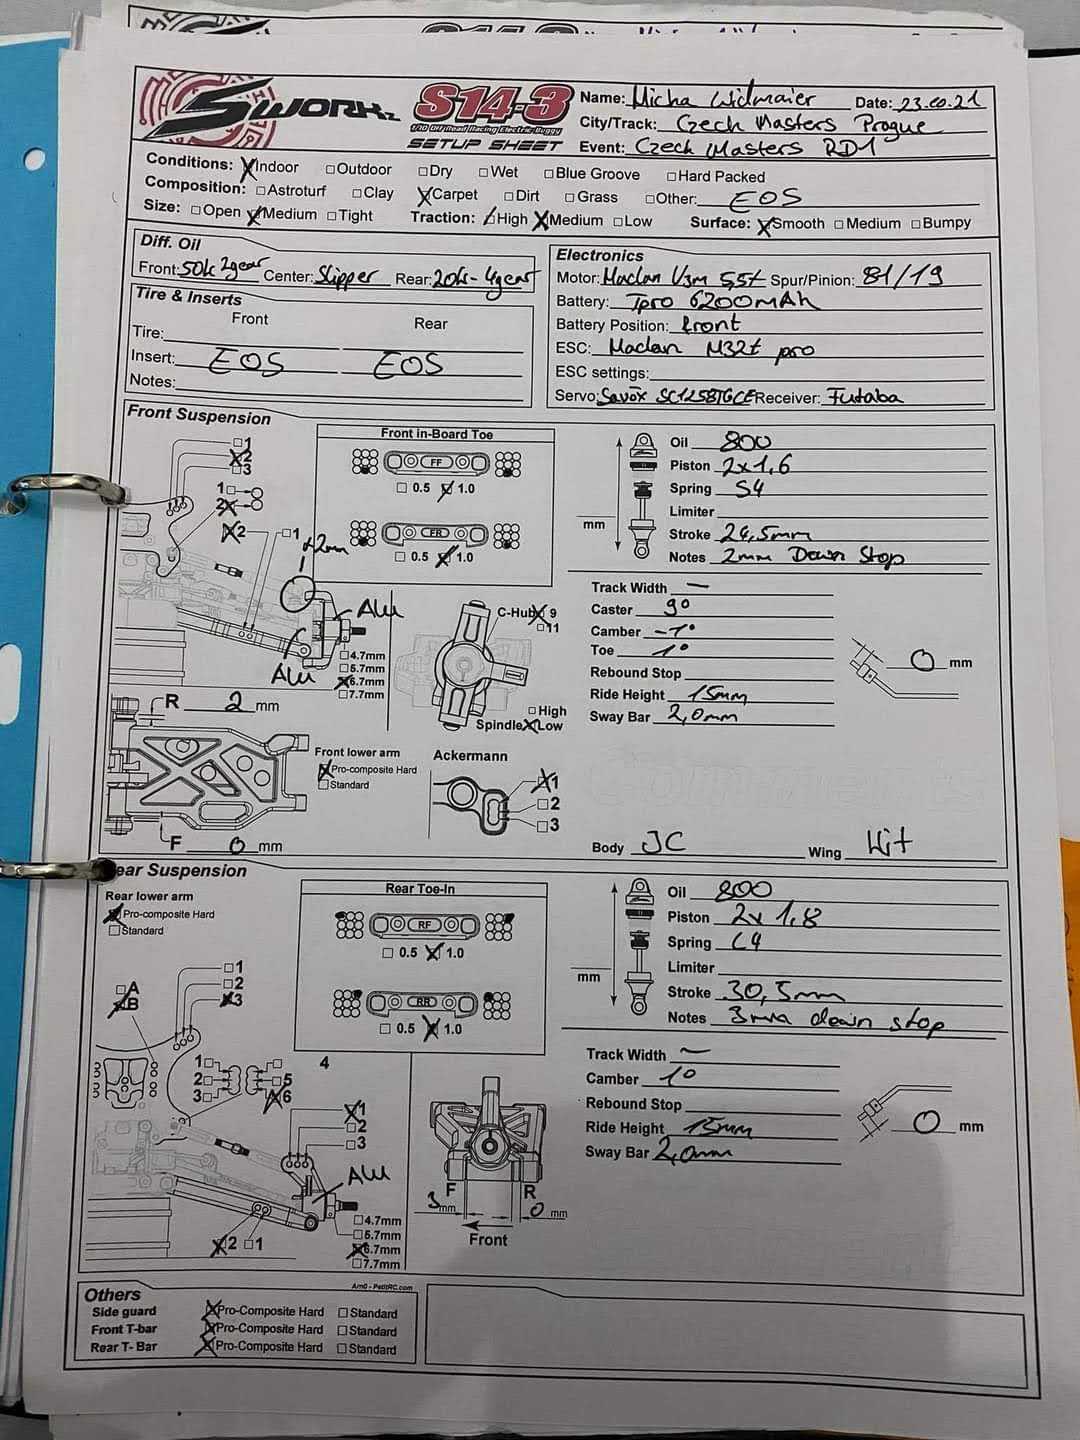 SWORKz S14-3
1/10 Off Road Racing Electric Buggy
SETUP SHEET
Name: Micha Widmaier Date: 23.10.21
City/Track: Czech Masters Prague
Event: Czech Masters RD1
Conditions: Indoor Outdoor Dry Wet Blue Groove Hard Packed
Composition: Astroturf Clay Carpet Dirt Grass Other: EOS
Size: Open Medium Tight Traction: High Medium Low Surface: Smooth Medium Bumpy
Diff. Oil
Front: 50k 2gear Center: Slipper Rear: 20k - 4gear
Tire & Inserts
Front Rear
Tire:
Insert: EOS EOS
Notes:
Electronics
Motor: Maclan V3m 5,5t Spur/Pinion: 81/19
Battery: Tpro 6200mAh
Battery Position: front
ESC: Maclan M32t pro
ESC settings:
Servo: Savöx SC1258TGCE Receiver: Futaba
Front Suspension
1
2
3
1
2
2 1
2mm
Alu
Alu
4.7mm
5.7mm
6.7mm
7.7mm
Front in-Board Toe
FF
0.5 1.0
FR
0.5 1.0
C-Hub 9
11
High
Spindle Low
R 2 mm
F 0 mm
Front lower arm
Pro-composite Hard
Standard
Ackermann
1
2
3
mm
Oil 800
Piston 2x1,6
Spring S4
Limiter
Stroke 24,5mm
Notes 2mm Down Stop
Track Width –
Caster 9°
Camber -1°
Toe 1°
Rebound Stop
Ride Height 15mm
Sway Bar 2,0mm
0 mm
Body JC Wing Wit
Rear Suspension
Rear lower arm
Pro-composite Hard
Standard
A
B
1
2
3
1
2
3
4
5
6
1
2
3
Alu
2 1
4.7mm
5.7mm
6.7mm
7.7mm
Rear Toe-In
RF
0.5 1.0
RR
0.5 1.0
F R
3 mm 0 mm
Front
mm
Oil 800
Piston 2x1,8
Spring L4
Limiter
Stroke 30,5mm
Notes 3mm down stop
Track Width –
Camber 1°
Rebound Stop
Ride Height 15mm
Sway Bar 2,0mm
0 mm
Am0 - PetitRC.com
Others
Side guard Pro-Composite Hard Standard
Front T-bar Pro-Composite Hard Standard
Rear T- Bar Pro-Composite Hard Standard